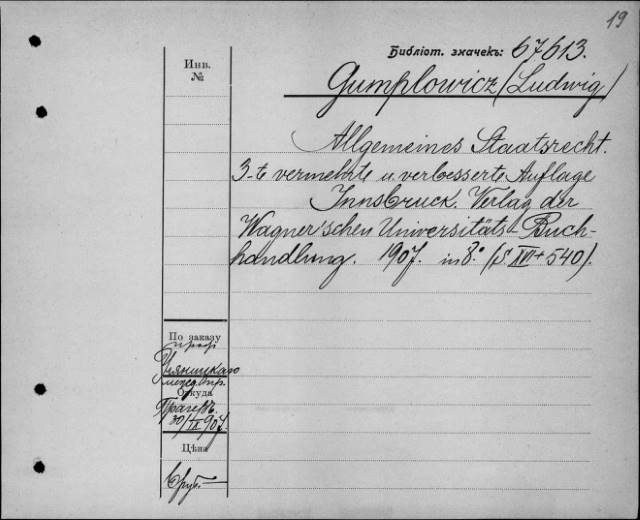 19
Библіот. значекъ: 67613.
Инв.
№
Gumplowicz (Ludwig)
Allgemeines Staatsrecht.
3-te vermehrte u. verbesserte Auflage
Innsbruck. Verlag der
Wagner'schen Universitäts-Buch-
handlung. 1907. in 8.° (S. + 540).
По заказу
проф
Откуда
Прагеръ
1907.
Цѣна
руб.